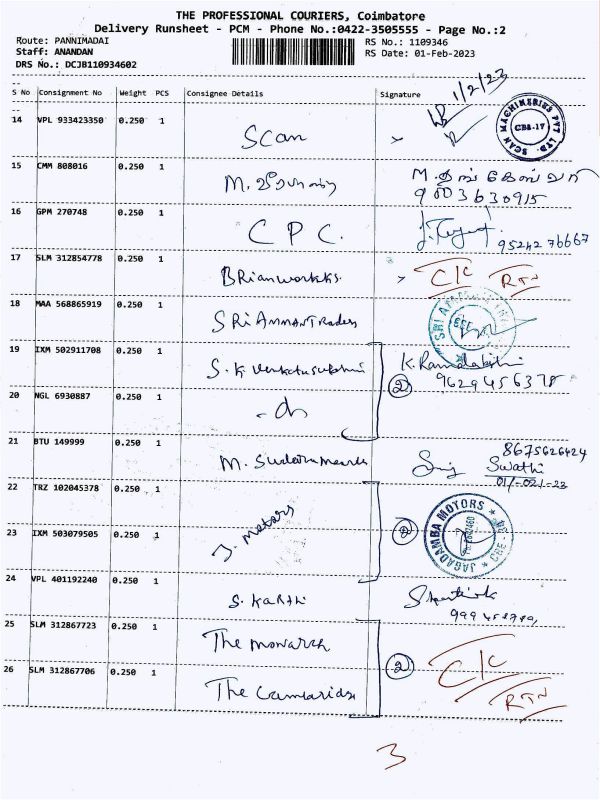 THE PROFESSIONAL COURIERS, Coimbatore
Delivery Runsheet - PCM - Phone No.:0422-3505555 - Page No.:2
Route: PANNIMADAI
Staff: ANANDAN
DRS No.: DCJB110934602
RS No.: 1109346
RS Date: 01-Feb-2023
S No Consignment No Weight PCS Consignee Details Signature
1/2/23
14 VPL 933423350 0.250 1 Scan
SCAN MACHINERIES PVT LTD. CBE-17
15 CMM 808016 0.250 1 M.
9003630915
16 GPM 270748 0.250 1 C P C.
9524276667
17 SLM 312854778 0.250 1 BRianworkks C/C RTN
18 MAA 568865919 0.250 1 SRi AMMAN Traders
SRI
19 IXM 502911708 0.250 1 S.K
2 9629456378
20 NGL 6930887 0.250 1 -do
21 BTU 149999 0.250 1 M.
8675626424
Swathi
22 TRZ 102045378 0.250 1 J. Motors
23 IXM 503079505 0.250 1
2 JAGADAMBA MOTORS
24 VPL 401192240 0.250 1 S. Karthi
25 SLM 312867723 0.250 1 The Monarch
2 C/C
26 SLM 312867706 0.250 1 The
RTN
3